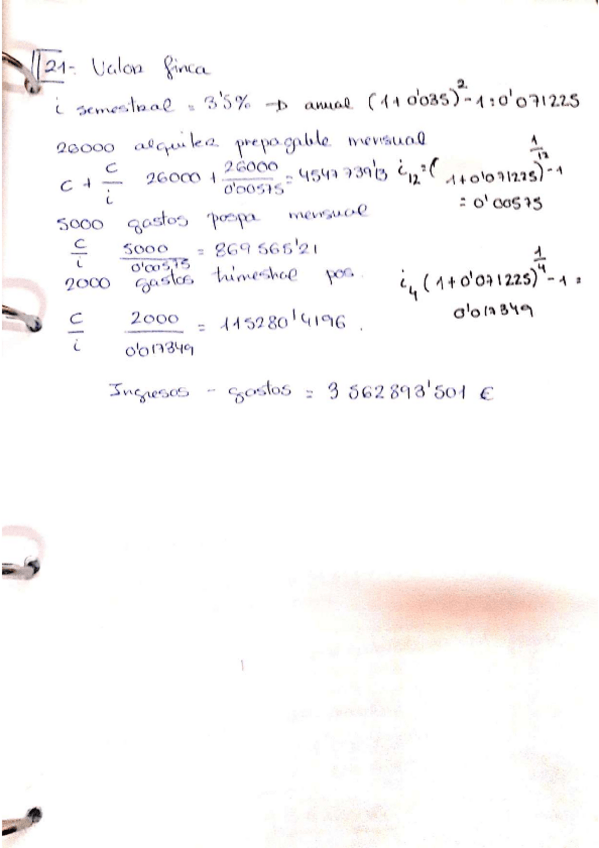 21- Valor finca
i semestral = 3'5% → anual (1+0'035)^2 -1 = 0'071225
26000 alquiler prepagable mensual
C + C/i 26000 + 26000/0'00575 = 4547739'13 i12 = (1+0'071225)^1/12 -1
= 0'00575
5000 gastos pospa mensual
C/i 5000/0'00575 = 869565'21
2000 gastos trimestral pos. i4 (1+0'071225)^1/4 -1 =
0'017349
C/i 2000/0'017349 = 115280'4196.
Ingresos - gastos = 3562893'501 €